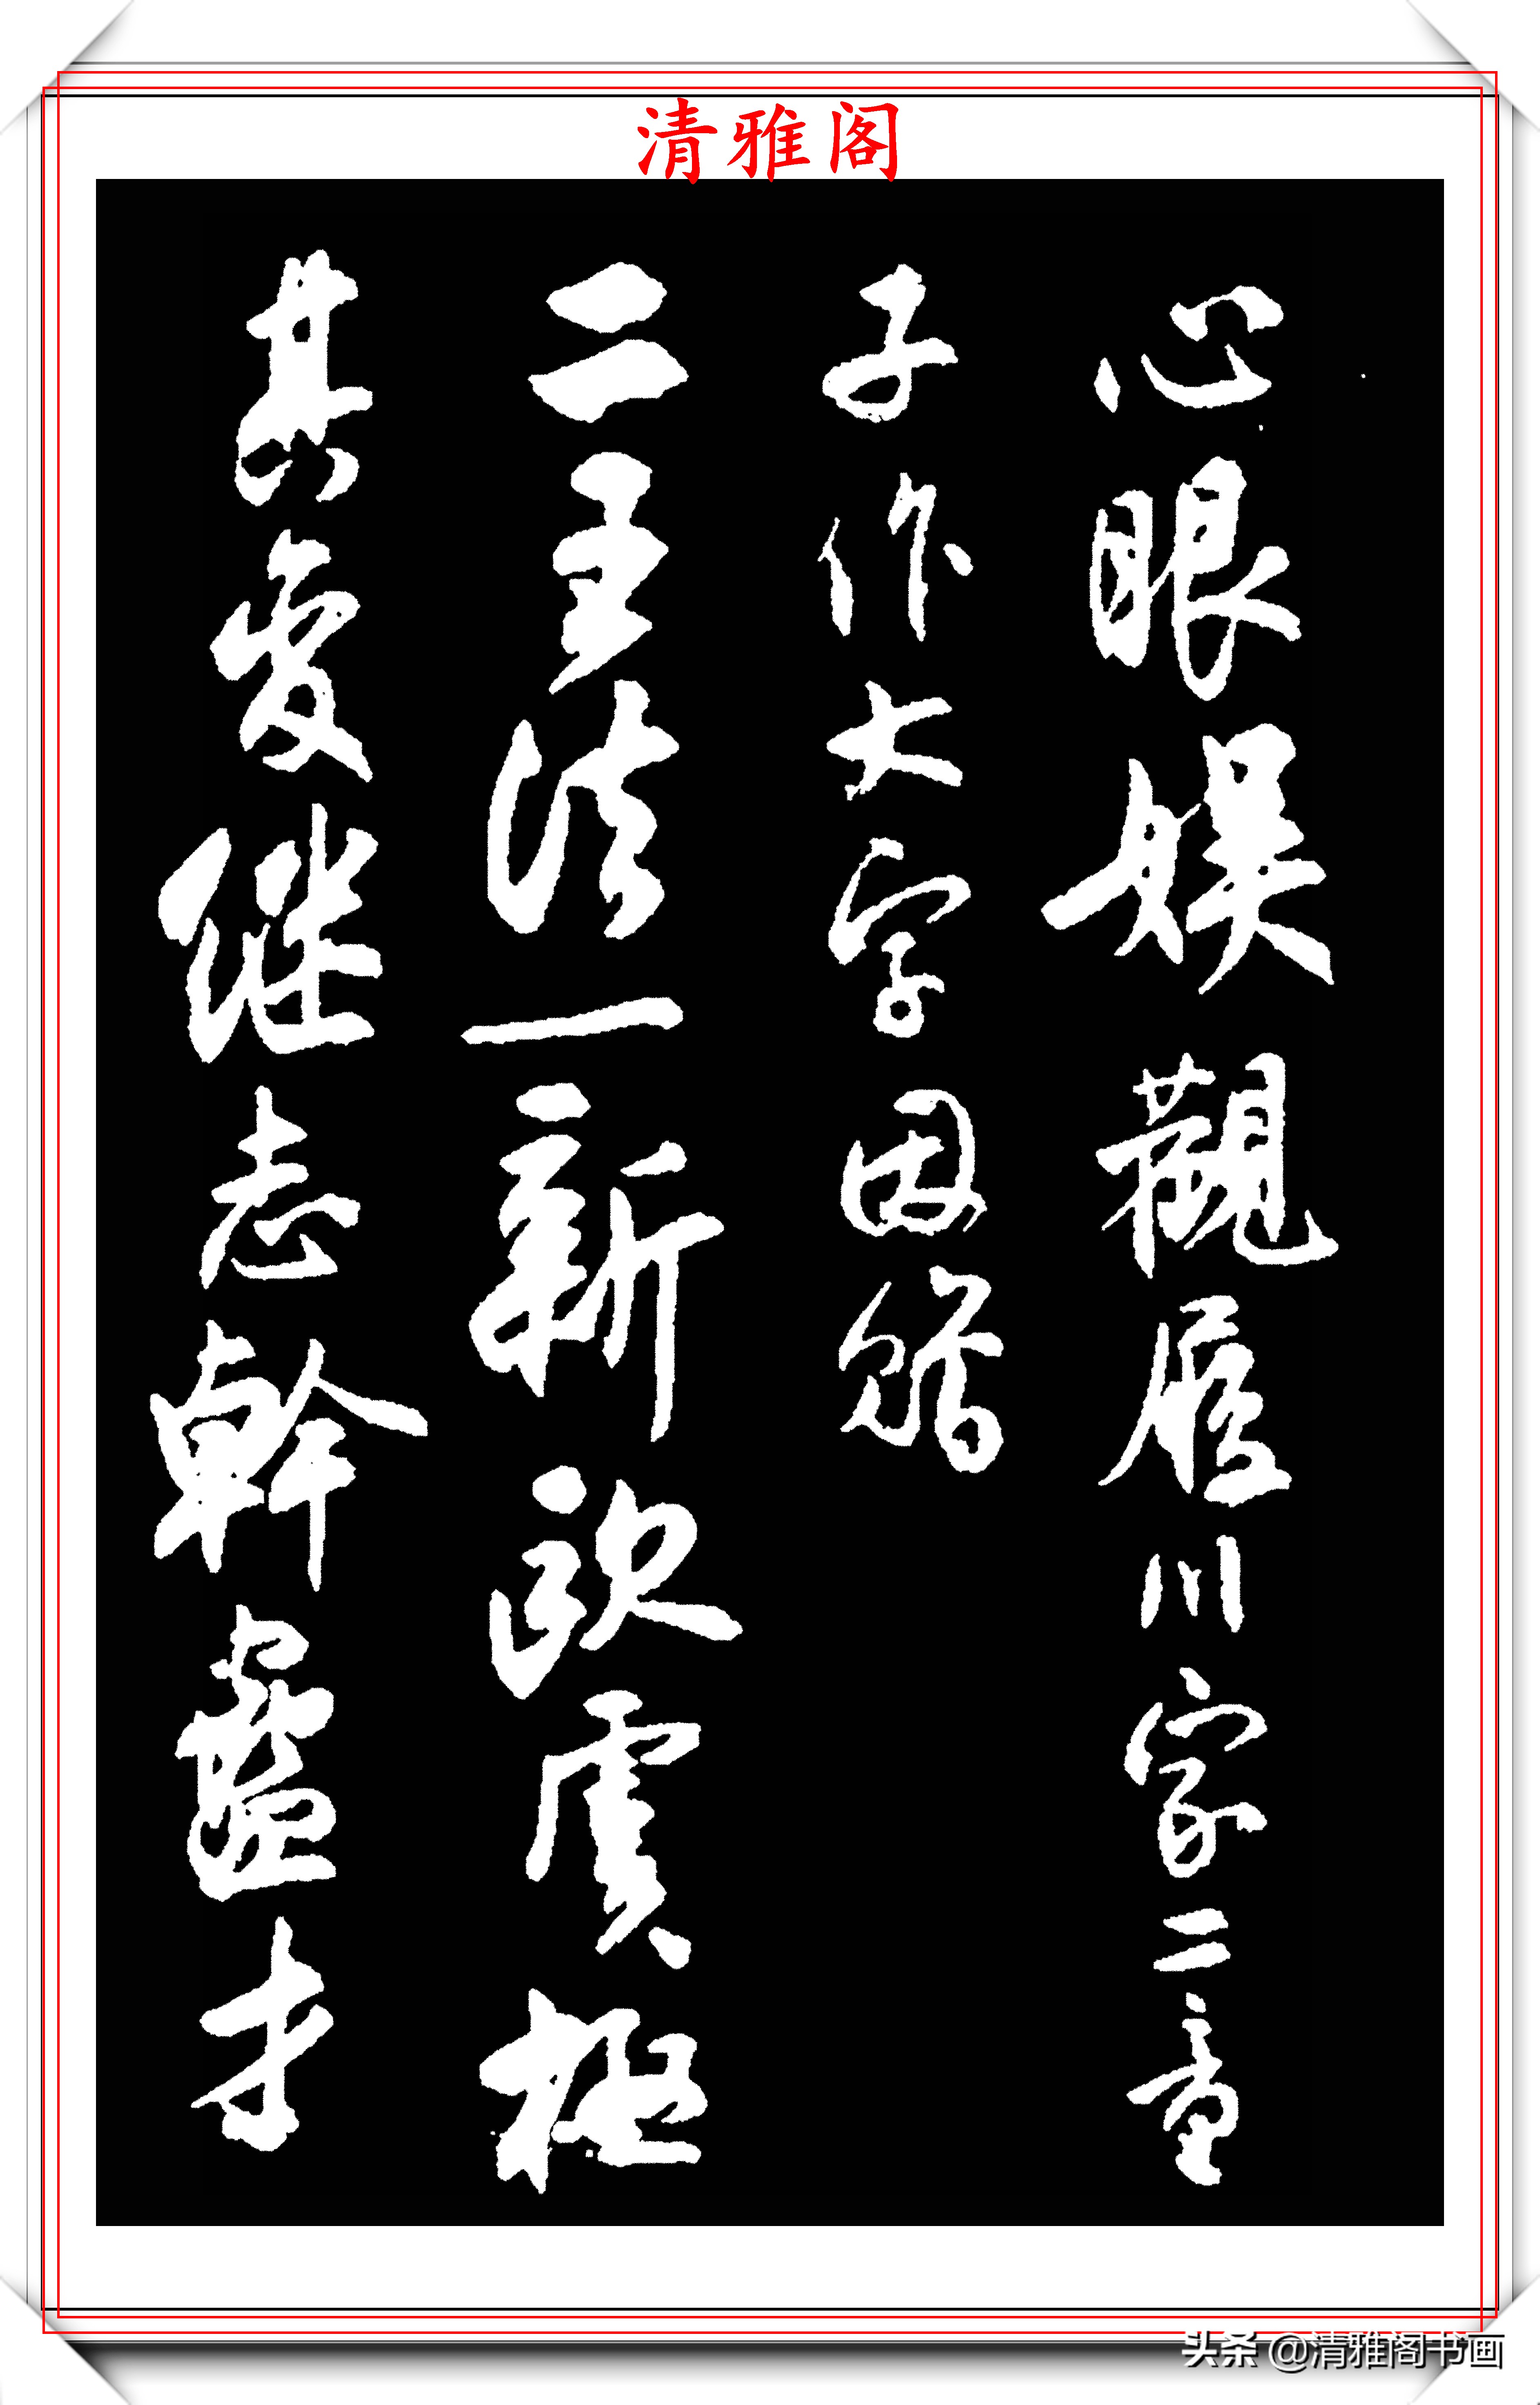 清雅阁
心眼娱觀履川家二童
子作大字因贈
二王法一新欧虞極
其變继志幹蛊才
头条 @清雅阁书画